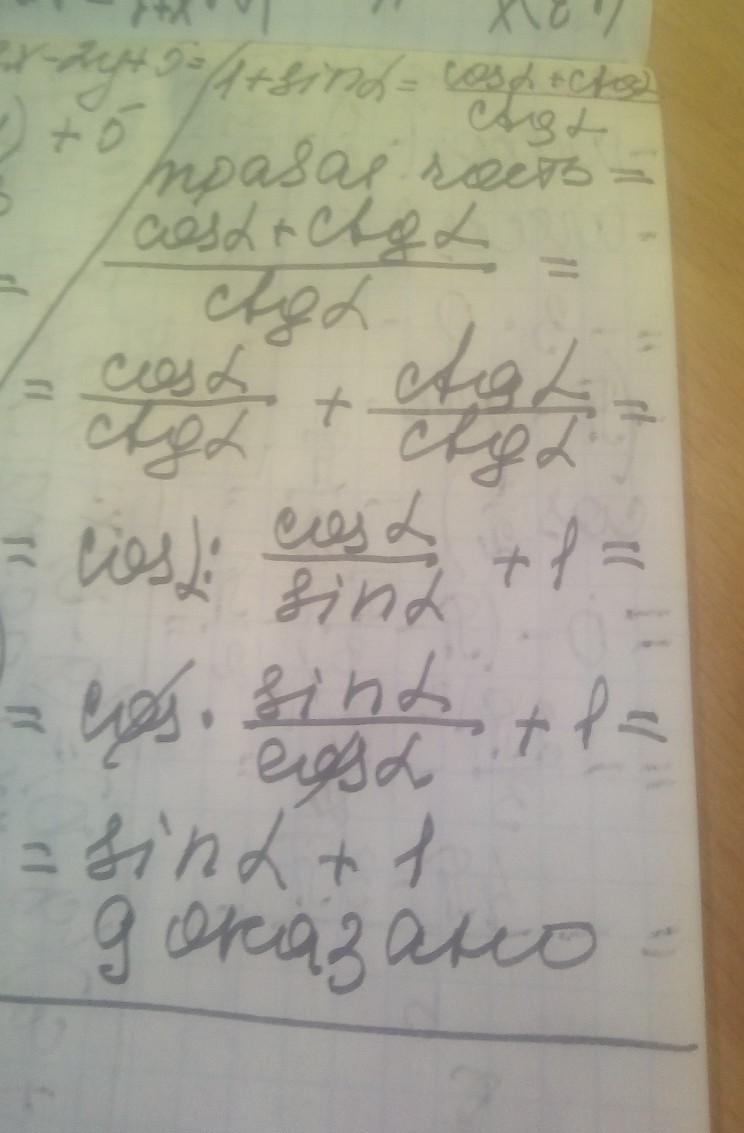 2x-2y+5=
) + 5
1+sinα = (cosα+ctgα)/ctgα
правая часть =
(cosα+ctgα)/ctgα =
= cosα/ctgα + ctgα/ctgα =
= cosα: cosα/sinα + 1 =
= cos · sinα/cosα + 1 =
= sinα + 1
доказано